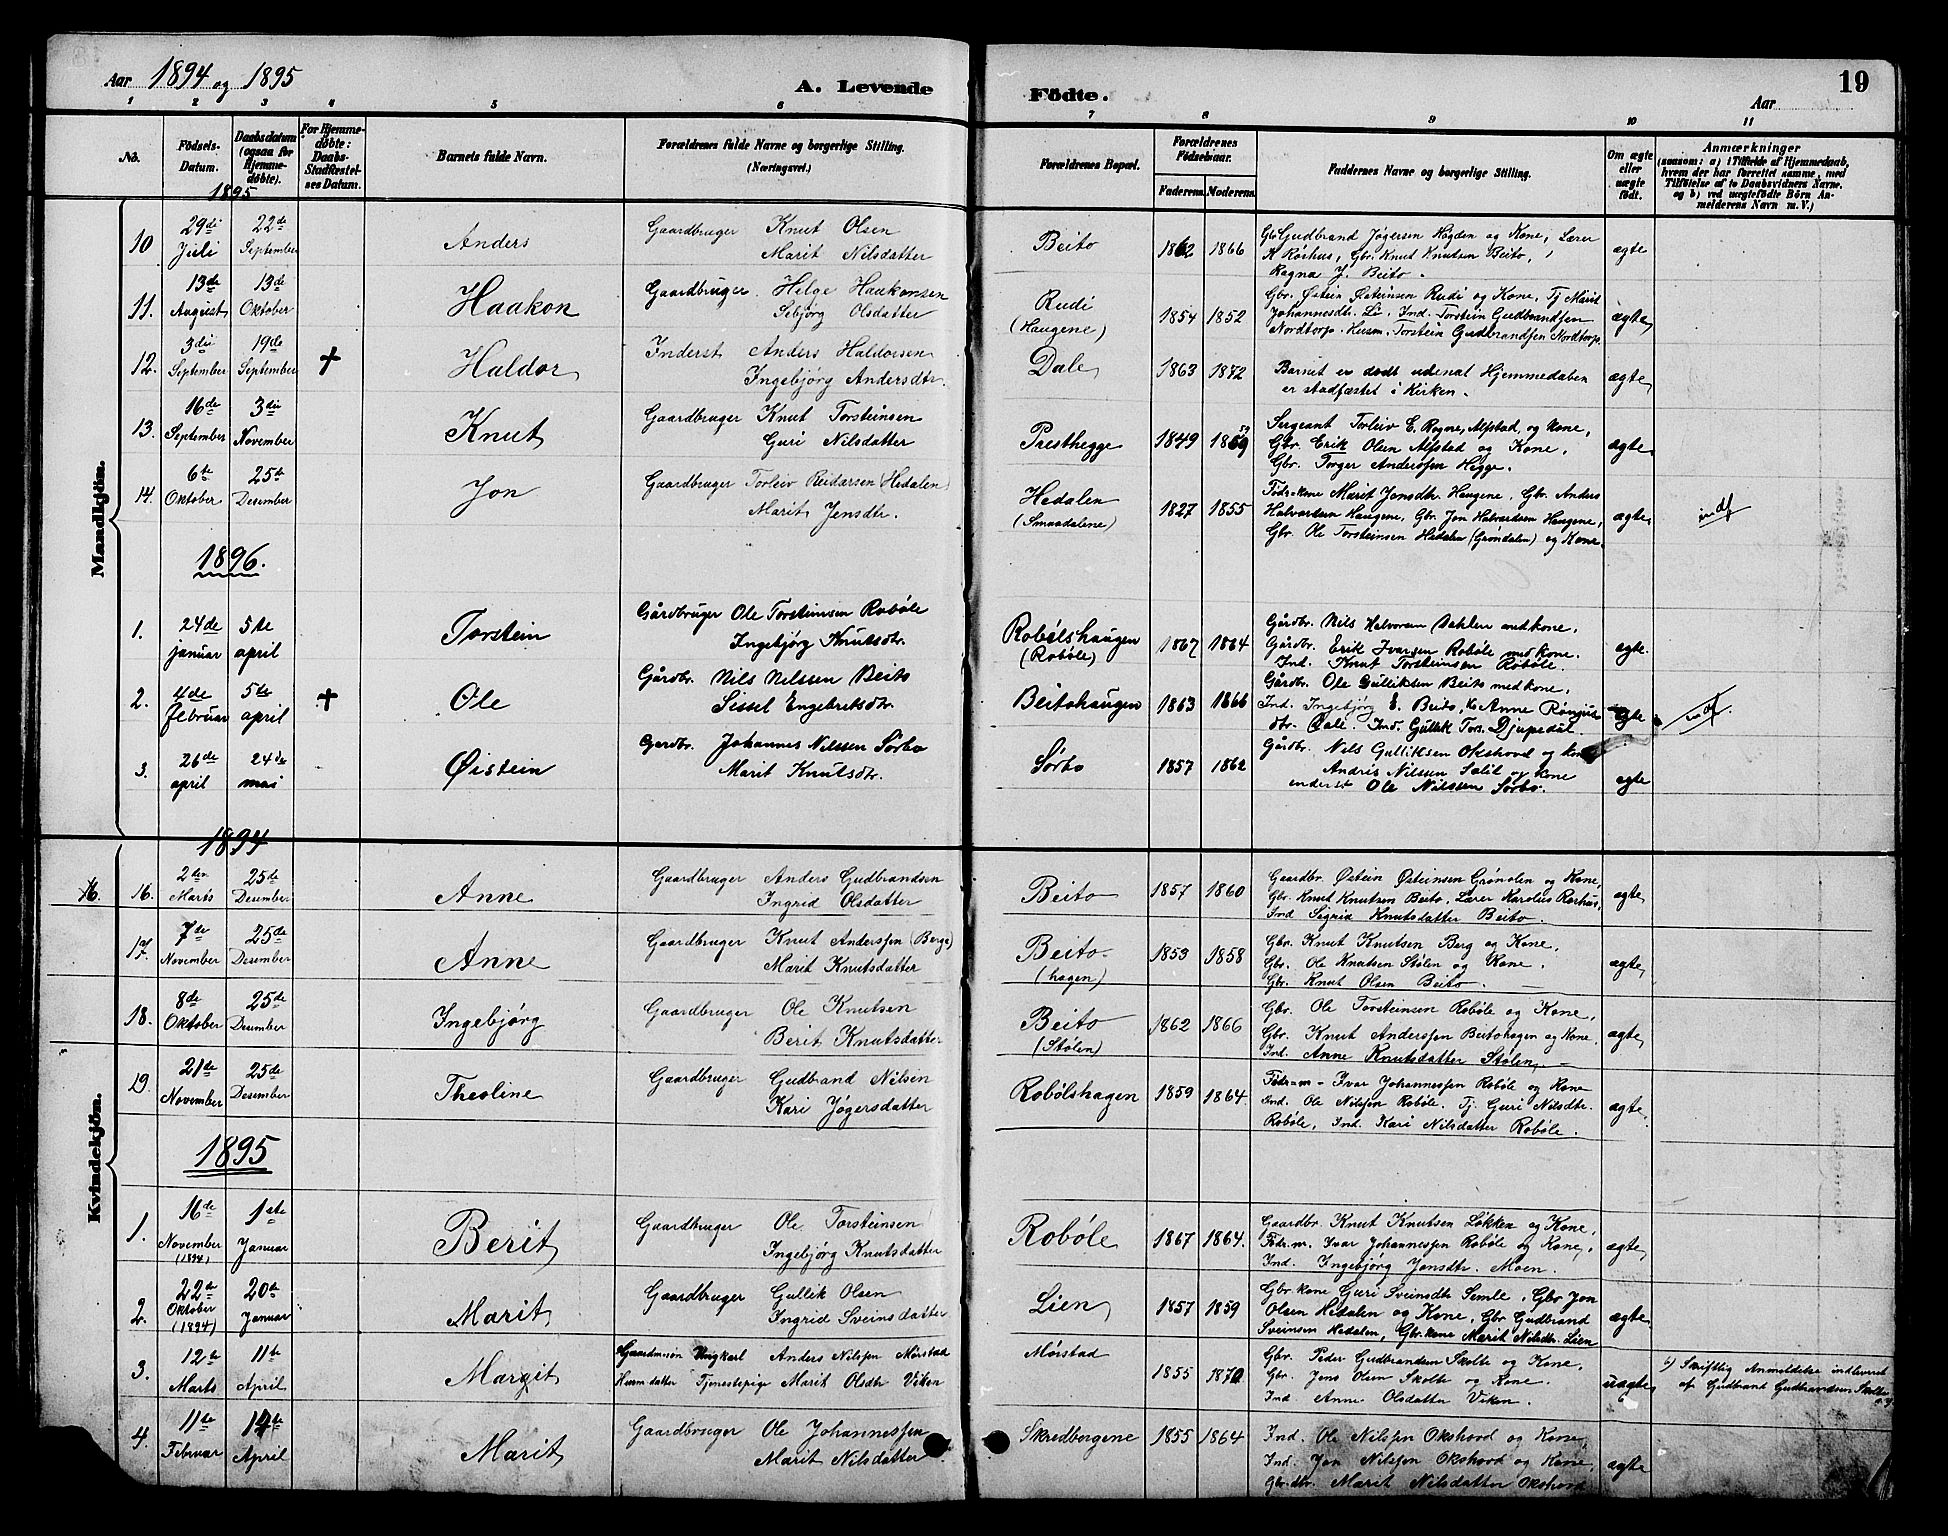 Aar 1894 og 1895
A. Levende Födte.
19
Aar
1 2 3 4 5 6 7 8 9 10 11
No.
Födsels-Datum.
Daabsdatum (ogsaa for Hjemme-döbte).
For Hjemme-döbte: Daabs-Stadfæstel-ses Datum.
Barnets fulde Navn.
Forældrenes fulde Navne og borgerlige Stilling. (Næringsvei.)
Forældrenes Bopæl.
Forældrenes Födselsaar.
Faderens. Moderens.
Faddernes Navne og borgerlige Stilling.
Om ægte eller uægte födt.
Anmærkninger
(saasom: a) i Tilfælde af Hjemmedaab, hvem der har forrettet samme, med Tilföielse af to Daabsvidners Navne, og b) ved uægtefödte Börn An-melderens Navn m. V.)
Mandkjön.
1895
10 29de Juli 22de September Anders Gaardbruger Knut Olsen Marit Nilsdatter Beito 1862 1866 Gbr Gudbrand Jögersen Högden og Kone, Lærer K Rorhus, Gbr. Knut Knutsen Beito, Ragna J. Beito. ægte
11. 13de August 13de Oktober Haakon Gaardbruger Helge Haakonsen Sebjörg Olsdatter Rudi (Haugene) 1854 1852 Gbr. Østein Østeinsen Rudi og Kone, Tj Marit Johannesdtr. Li, Ind. Torstein Gudbrandsen Nordtorp. Husm. Torstein Gudbrandsen Nordtorp. ægte
12. 3die September 19de September † Haldor Inderst Anders Haldorsen Ingebjörg Andersdtr. Dale 1863 1872 Barnet er dödt udenat Hjemmedaben er stadfæstet i Kirken. ægte
13. 16de September 3die November Knut Gaardbruger Knut Torsteinsen Guri Nilsdatter Presthegge 1849 1859 Sergeant Torleiv E. Rogne, Alfstad, og Kone, Gbr. Erik Olsen Alfstad og Kone, Gbr. Torger Andersen Hegge. ægte
14. 6te Oktober 25de Desember Jon Gaardbruger Torleiv Reidarsen (Hedalen) Marit Jensdtr. Hedalen (Smaadalene) 1827 1855 Födr.kone Marit Jonsdtr. Haugene, Gbr. Anders Halvorsen Haugene, Gbr. Jon Halvordsen Haugene, Gbr. Ole Torsteinsen Hedalen (Gröndalen) og Kone. ægte indf
1896.
1. 24de januar 5te april Torstein Gårdbruger Ole Torsteinsen Robøle Ingebjörg Knutsdtr. Robølshaugen (Robøle) 1867 1864 Gårdbr. Nils Halvorsen Dahlen med kone, Gårdbr. Erik Ivarsen Robøle med kone. Ind. Knut Torsteinsen Robøle. ægte.
2. 4de februar 5te april † Ole Gårdbr. Nils Nilssen Beito Sissel Engebretsdtr. Beitohaugen 1863 1866 Gårdbr. Ole Gulliksen Beito med kone, Ind. Ingebjørg E. Beito, Anne dtr. Ind. Gullik Tors. Djupedal. ægte indf.
3. 26de april 24de mai Øistein Gardbr. Johannes Nilssen Sørbo Marit Knutsdtr. Sørbo 1857 1862 Gårdbr. Nils Gulliksen Okshovd og kone Andris Nilssen og kone enderst Ole Nilssen Sørbo. ægte
Kvindekjön.
1894
16. 16. 2den Marts 25de Desember Anne Gaardbruger Anders Gudbrandsen Ingrid Olsdatter Beito 1857 1860 Gaardbr. Østein Østeinsen Grønolen og Kone, Gbr. Knut Knutsen Beito, Lærer Karolus Rorhus, Ind Sigrid Knutsdatter Beito. ægte
17. 7de November 25de Desember Anne Gaardbruger Knut Anderssen (Berge) Marit Knutsdatter Beito- (hagen) 1853 1858 Gbr. Knut Knutsen Berg og Kone, Gbr. Ole Knutsen Stølen og Kone. Gbr. Knut Olsen Beito. ægte
18. 8de Oktober 25de Desember Ingebjørg Gaardbruger Ole Knutsen Berit Knutsdatter Beito (Stølen) 1862 1866 Gbr. Ole Torsteinsen Robøle og Kone, Gbr. Knut Anderssen Beitohagen og Kone, Ind. Anne Knutsdatter Stølen. ægte
19. 21de November 25de Desember Theoline Gaardbruger Gudbrand Nilsen Kari Jøgersdatter Robølshagen 1859 1864. Födr.m. Ivar Johannessen Robøle og Kone Ind. Ole Nilssen Robøle. Tj. Guri Nilsdtr. Robøle, Ind. Kari Nilsdatter Robøle. ægte
1895
1. 16de November (1894) 1ste Januar Berit Gaardbruger Ole Torsteinsen Ingebjørg Knutsdatter Robøle 1867 1864. Gaardbr. Knut Knutsen Løkken og Kone, Födr.m. Ivar Johannessen Robøle og Kone, Ind. Ingebjørg Jonsdtr. Moen. ægte
2. 22de Oktober (1894) 20de Januar Marit Gaardbruger Gullik Olsen Ingrid Sveinsdatter Lien 1857 1859 Gbr. kone Guri Sveinsdtr Semle, Gbr Jon Olsen Hedalen og Kone, Gbr Gudbrand Sveinsen Hedalen, Gbr. kone Marit Nilsdtr. Lien ægte
3. 12te Marts 11te April Margit Gaardmandssön Ungkarl Anders Nilssen Mørstad Husm datter Tjenestepige Marit Olsdtr Viken Mørstad 1855 1870 Gbr. Peder Gudbrandsen Skolte og Kone, Gbr. Jens Olsen Skolte og Kone. Ind. Anne Olsdatter Viken. uægte b) Skriftlig Anmeldelse indleveret af Gudbrand Gudbrandsen Skolte
4. 11te Februar 14de April Marit Gaardbruger Ole Johannessen Marit Nilsdatter Skredbergene 1855 1864 Ind. Ole Nilssen Okshovd og Kone, Ind. Jon Nilssen Okshovd og Kone, Gbr.dtr. Marit Nilsdatter Okshovd ægte